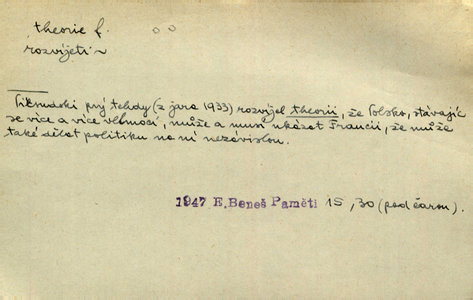 theorie f.
rozvíjeti ~
Piłsudski prý tehdy (z jara 1933) rozvíjel theorii, že Polsko, stávajíc
se více a více velmocí, může a musí ukázat Francii, že může
také dělat politiku na ní nezávislou.
1947 E. Beneš Paměti 15, 30 (pod čarou).